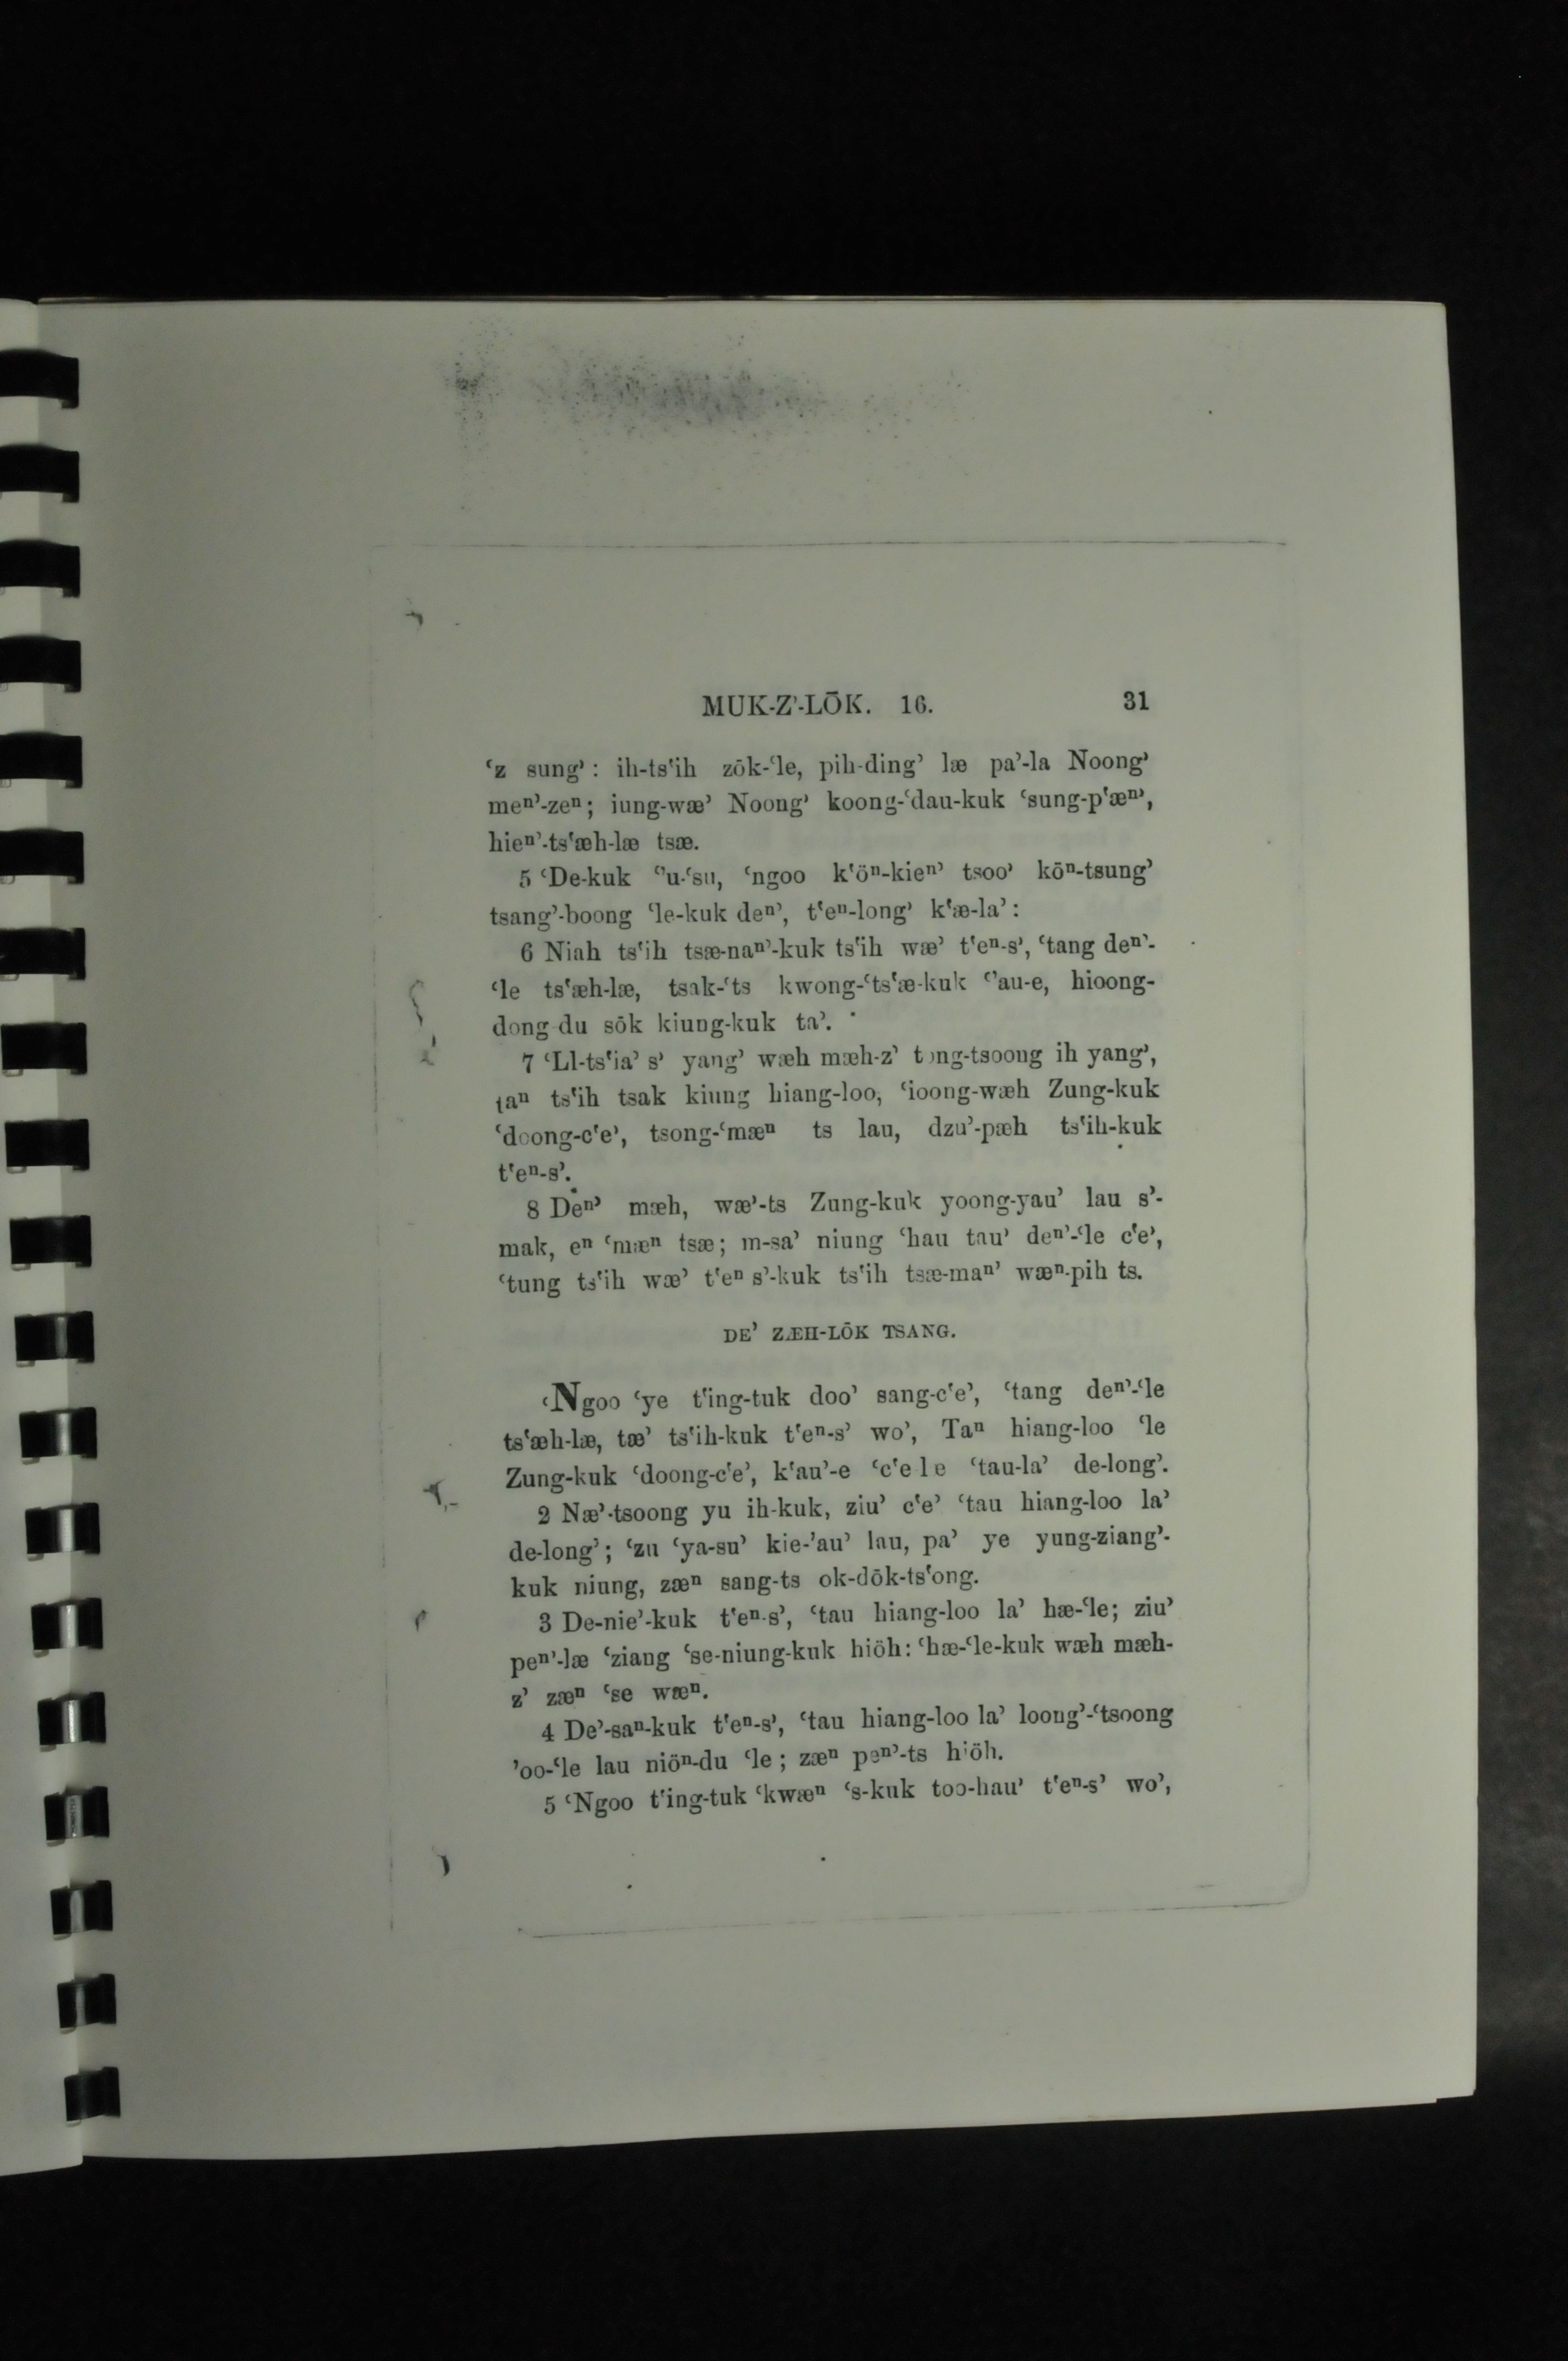 MUK-Z’-LŌK. 16. 31
‘z sung’: ih-ts‘ih zōk-‘le, pih-ding’ læ pa’-la Noong’
meⁿ’-zeⁿ; iung-wæ’ Noong’ koong-‘dau-kuk ‘sung-p‘æⁿ’,
hieⁿ’-ts‘æh-læ tsæ.
5 ‘De-kuk ‘’u-‘su, ‘ngoo k‘öⁿ-kieⁿ’ tsoo’ kōⁿ-tsung’
tsang’-boong ‘le-kuk deⁿ’, t‘eⁿ-long’ k‘æ-la’:
6 Niah ts‘ih tsæ-naⁿ’-kuk ts‘ih wæ’ t‘eⁿ-s’, ‘tang deⁿ’-
‘le ts‘æh-læ, tsak-‘ts kwong-‘ts‘æ-kuk ‘’au-e, hioong-
dong-du sōk kiung-kuk ta’.
7 ‘Ll-ts‘ia’ s’ yang’ wæh mæh-z’ tong-tsoong ih yang’,
taⁿ ts‘ih tsak kiung hiang-loo, ‘ioong-wæh Zung-kuk
‘doong-c‘e’, tsong-‘mæⁿ ts lau, dzu’-pæh ts‘ih-kuk
t‘eⁿ-s’.
8 Deⁿ’ mæh, wæ’-ts Zung-kuk yoong-yau’ lau s’-
mak, eⁿ ‘mæⁿ tsæ; m-sa’ niung ‘hau tau’ deⁿ’-‘le c‘e’,
‘tung ts‘ih wæ’ t‘eⁿ s’-kuk ts‘ih tsæ-maⁿ’ wæⁿ-pih ts.
DE’ ZÆH-LŌK TSANG.
‘Ngoo ‘ye t‘ing-tuk doo’ sang-c‘e’, ‘tang deⁿ’-‘le
ts‘æh-læ, tæ’ ts‘ih-kuk t‘eⁿ-s’ wo’, Taⁿ hiang-loo ‘le
Zung-kuk ‘doong-c‘e’, k‘au’-e ‘c‘e le ‘tau-la’ de-long’.
2 Næ’-tsoong yu ih-kuk, ziu’ c‘e’ ‘tau hiang-loo la’
de-long’; ‘zu ‘ya-su’ kie-’au’ lau, pa’ ye yung-ziang’-
kuk niung, zæⁿ sang-ts ok-dōk-ts‘ong.
3 De-nie’-kuk t‘eⁿ-s’, ‘tau hiang-loo la’ hæ-‘le; ziu’
peⁿ’-læ ‘ziang ‘se-niung-kuk hiöh: ‘hæ-‘le-kuk wæh mæh-
z’ zæⁿ ‘se wæⁿ.
4 De’-saⁿ-kuk t‘eⁿ-s’, ‘tau hiang-loo la’ loong’-‘tsoong
’oo-‘le lau niöⁿ-du ‘le; zæⁿ peⁿ’-ts hiöh.
5 ‘Ngoo t‘ing-tuk ‘kwæⁿ ‘s-kuk too-hau’ t‘eⁿ-s’ wo’,